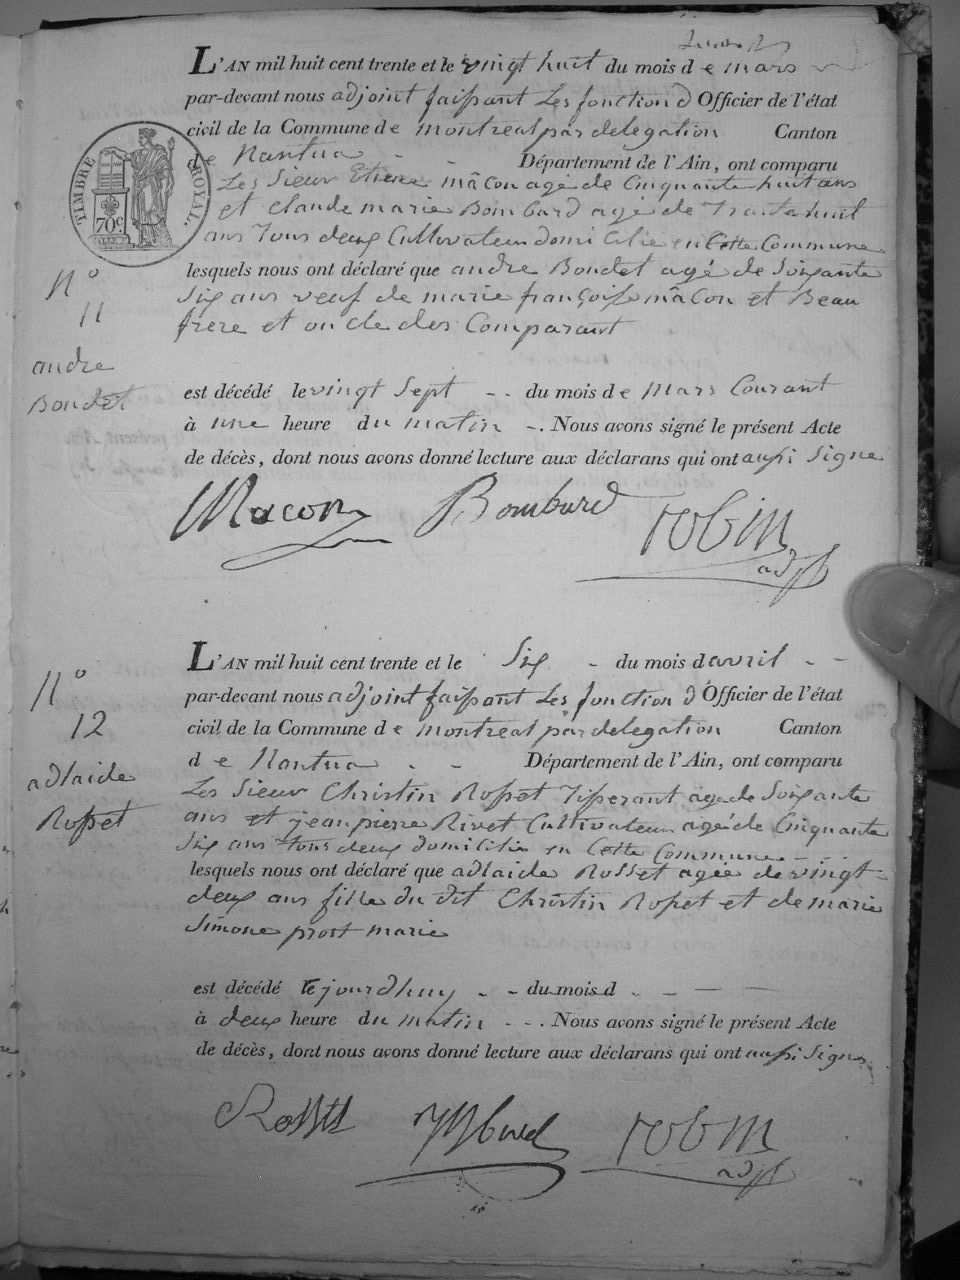 L'AN mil huit cent trente et le vingt huit du mois de mars
par-devant nous adjoint faissant Les fonction d Officier de l'état
civil de la Commune de montreal par delegation Canton
de Nantua - - Département de l'Ain, ont comparu
TIMBRE ROYAL.
70 c.
Les Sieur Etiene mâcon agé de Cinquante huit ans
et claude marie Bombard agé de Trante huit
ans Tous deux Cultivateur domicilié en Cette Commune
lesquels nous ont déclaré que andre Bondet agé de Soixante
Six ans veuf de marie françoise mâcon et Beau
frere et oncle des Comparant
N° 11
andre
Bondet
est décédé le vingt Sept - - du mois de Mars Courant
à une heure du matin -. Nous avons signé le présent Acte
de décès, dont nous avons donné lecture aux déclarans qui ont aussi Signe
Macon Bombard robin
adjt
L'AN mil huit cent trente et le Six - du mois d avril - -
par-devant nous adjoint faissant Les fonction d Officier de l'état
civil de la Commune de montreal par delegation Canton
de Nantua - - Département de l'Ain, ont comparu
Les Sieur Christin Rosset Tisserant agé de Soixante
ans et jean pierre Rivet Cultivateur agé de Cinquante
Six ans Tous deux domicilié en Cette Commune - - -
lesquels nous ont déclaré que adlaide Rosset agée de vingt
deux ans fille du dit Christin Rosset et de marie
Simone prost marie
N° 12
adlaide
Rosset
est décédé le jourdhuy - - du mois d - - - -
à deux heure du matin - - . Nous avons signé le présent Acte
de décès, dont nous avons donné lecture aux déclarans qui ont aussi Signe
robin
adjt